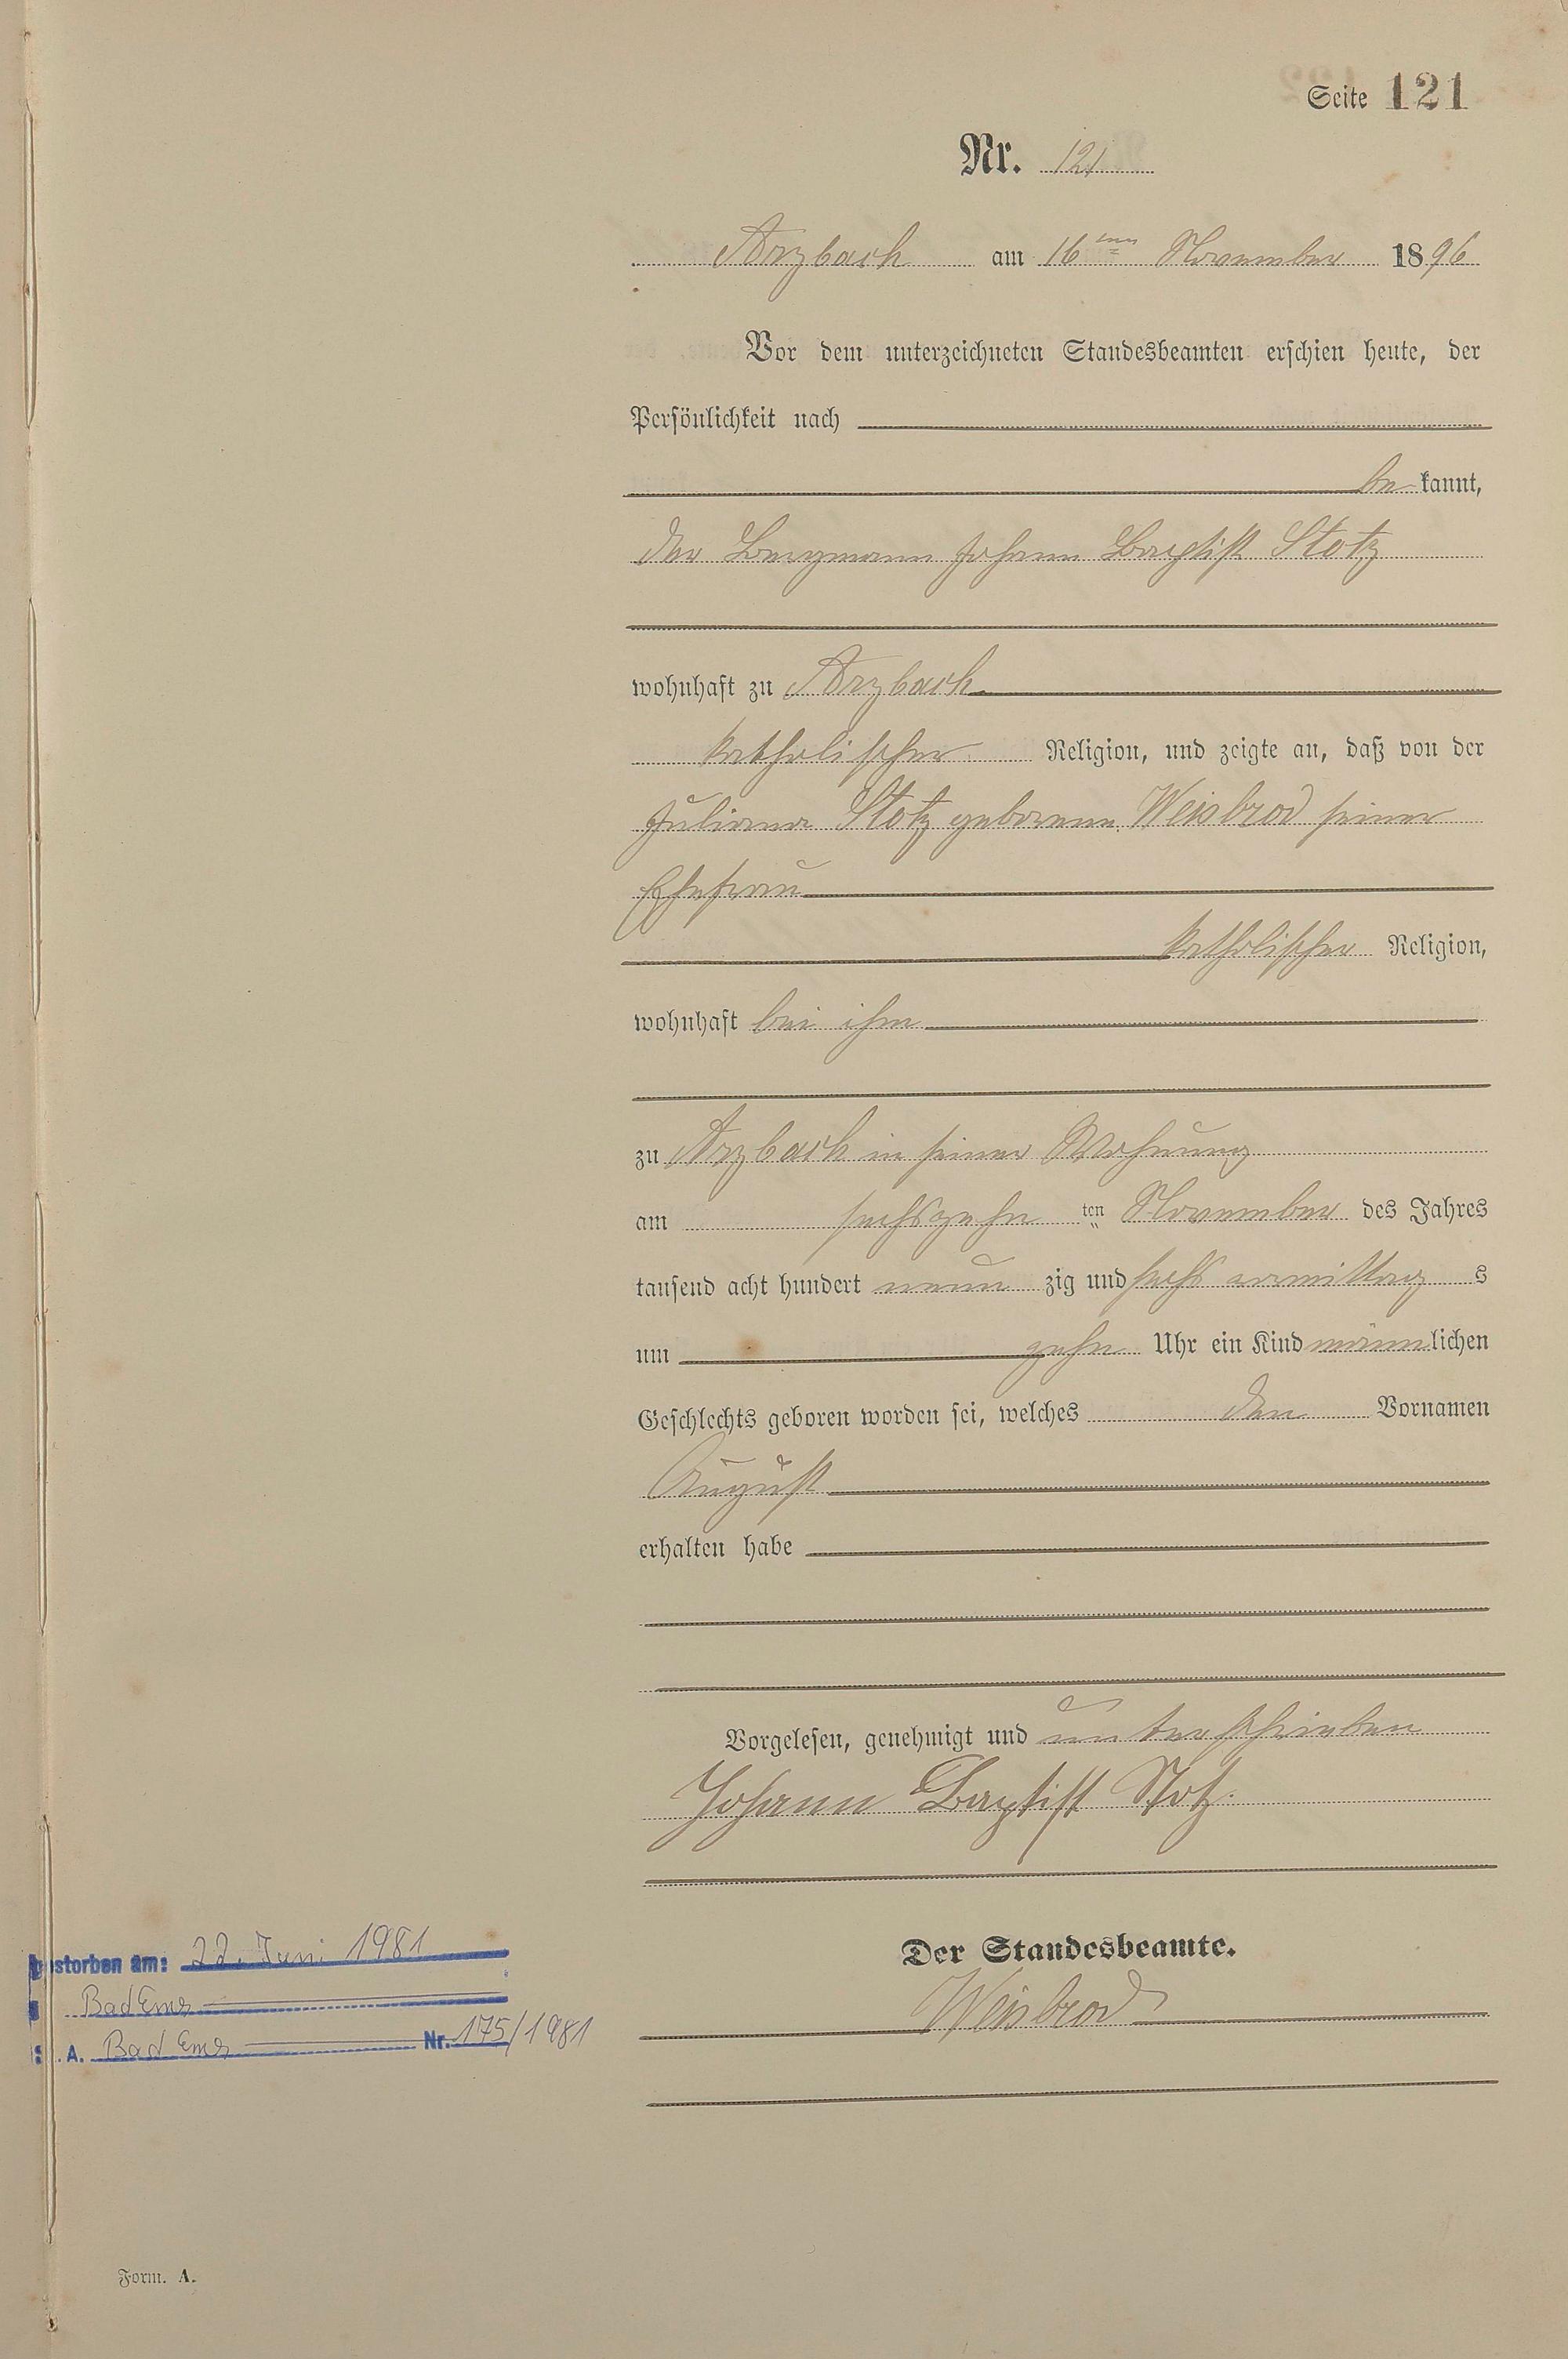 Seite 121
Nr. 121
Arzbach am 16ten November 1896
Vor dem unterzeichneten Standesbeamten erschien heute, der
Persönlichkeit nach
bekannt,
der Bergmann Johann Baptist Stotz
wohnhaft zu Arzbach
katholischer Religion, und zeigte an, daß von der
Juliana Stotz geborenen Weisbrod seiner
Ehefrau
katholischer Religion,
wohnhaft bei ihm
zu Arzbach in seiner Wohnung
am sechszehn ten November des Jahres
tausend acht hundert neun zig und sechs vormittag s
um zehn Uhr ein Kind männlichen
Geschlechts geboren worden sei, welches den Vornamen
August
erhalten habe
Vorgelesen, genehmigt und unterschrieben
Johann Baptist Stotz.
Der Standesbeamte.
Weisbrod
gestorben am: 22. Juni 1981
Bad Ems
St. A. Bad Ems Nr. 175/1981
Form. A.